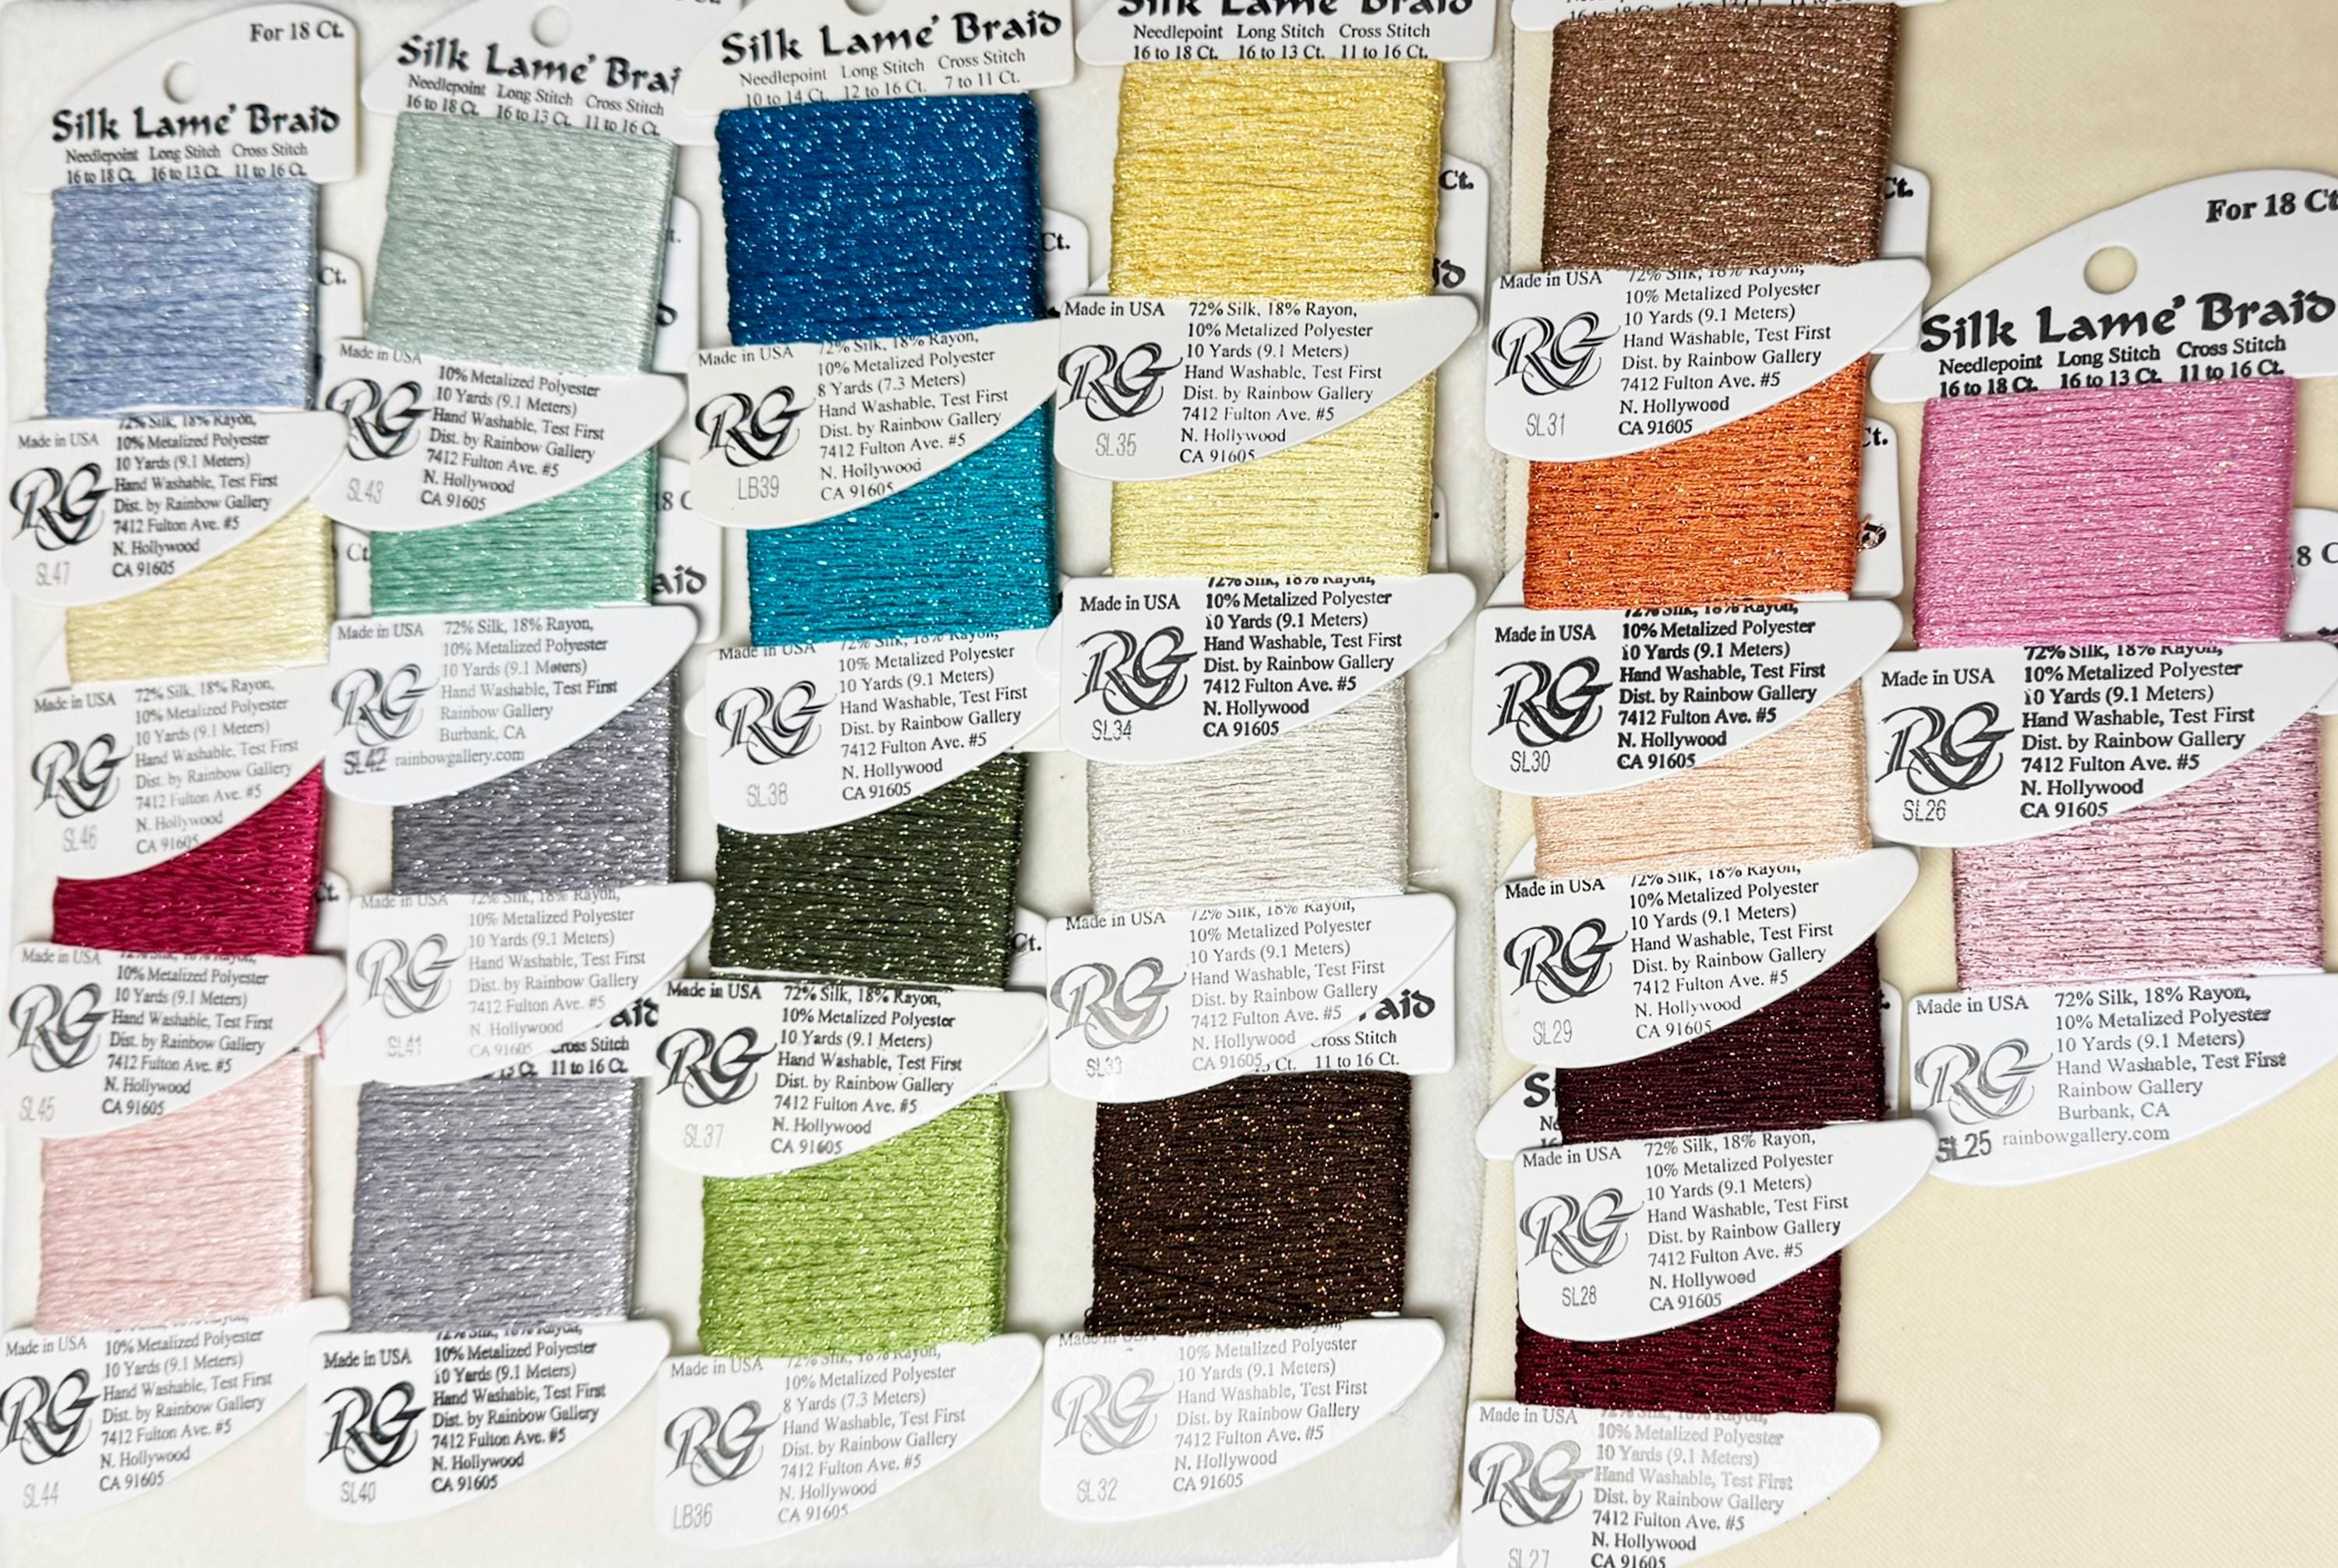 For 18 Ct.
Silk Lame' Braid
Needlepoint Long Stitch Cross Stitch
16 to 18 Ct. 16 to 13 Ct. 11 to 16 Ct.
Ct.
Made in USA
72% Silk, 18% Rayon,
10% Metalized Polyester
10 Yards (9.1 Meters)
Hand Washable, Test First
Dist. by Rainbow Gallery
7412 Fulton Ave. #5
N. Hollywood
CA 91605
RG
SL47
Made in USA
72% Silk, 18% Rayon,
10% Metalized Polyester
10 Yards (9.1 Meters)
Hand Washable, Test First
Dist. by Rainbow Gallery
7412 Fulton Ave. #5
N. Hollywood
CA 91605
RG
SL46
Ct.
Made in USA
10% Metalized Polyester
10 Yards (9.1 Meters)
Hand Washable, Test First
Dist. by Rainbow Gallery
7412 Fulton Ave. #5
N. Hollywood
CA 91605
RG
SL45
Made in USA
10% Metalized Polyester
10 Yards (9.1 Meters)
Hand Washable, Test First
Dist. by Rainbow Gallery
7412 Fulton Ave. #5
N. Hollywood
CA 91605
RG
SL44
Silk Lame' Brai
Needlepoint Long Stitch Cross Stitch
16 to 18 Ct. 16 to 13 Ct. 11 to 16 Ct.
Made in USA
10% Metalized Polyester
10 Yards (9.1 Meters)
Hand Washable, Test First
Dist. by Rainbow Gallery
7412 Fulton Ave. #5
N. Hollywood
CA 91605
RG
SL43
8 C
Ct
aid
Made in USA
72% Silk, 18% Rayon,
10% Metalized Polyester
10 Yards (9.1 Meters)
Hand Washable, Test First
Rainbow Gallery
Burbank, CA
rainbowgallery.com
RG
SL42
Made in USA
72% Silk, 18% Rayon,
10% Metalized Polyester
10 Yards (9.1 Meters)
Hand Washable, Test First
Dist. by Rainbow Gallery
7412 Fulton Ave. #5
N. Hollywood
CA 91605
RG
SL41
aid
Cross Stitch
11 to 16 Ct.
Made in USA
72% Silk, 18% Rayon,
10% Metalized Polyester
10 Yards (9.1 Meters)
Hand Washable, Test First
Dist. by Rainbow Gallery
7412 Fulton Ave. #5
N. Hollywood
CA 91605
RG
SL40
Silk Lame' Braid
Needlepoint Long Stitch Cross Stitch
10 to 14 Ct. 12 to 16 Ct. 7 to 11 Ct.
Ct.
Made in USA
72% Silk, 18% Rayon,
10% Metalized Polyester
8 Yards (7.3 Meters)
Hand Washable, Test First
Dist. by Rainbow Gallery
7412 Fulton Ave. #5
N. Hollywood
CA 91605
RG
LB39
Made in USA
72% Silk, 18% Rayon,
10% Metalized Polyester
10 Yards (9.1 Meters)
Hand Washable, Test First
Dist. by Rainbow Gallery
7412 Fulton Ave. #5
N. Hollywood
CA 91605
RG
SL38
Ct.
Made in USA
72% Silk, 18% Rayon,
10% Metalized Polyester
10 Yards (9.1 Meters)
Hand Washable, Test First
Dist. by Rainbow Gallery
7412 Fulton Ave. #5
N. Hollywood
CA 91605
RG
SL37
Made in USA
72% Silk, 18% Rayon,
10% Metalized Polyester
8 Yards (7.3 Meters)
Hand Washable, Test First
Dist. by Rainbow Gallery
7412 Fulton Ave. #5
N. Hollywood
CA 91605
RG
LB36
Silk Lame' Braid
Needlepoint Long Stitch Cross Stitch
16 to 18 Ct. 16 to 13 Ct. 11 to 16 Ct.
Ct.
Made in USA
72% Silk, 18% Rayon,
10% Metalized Polyester
10 Yards (9.1 Meters)
Hand Washable, Test First
Dist. by Rainbow Gallery
7412 Fulton Ave. #5
N. Hollywood
CA 91605
RG
SL35
Made in USA
72% Silk, 18% Rayon,
10% Metalized Polyester
10 Yards (9.1 Meters)
Hand Washable, Test First
Dist. by Rainbow Gallery
7412 Fulton Ave. #5
N. Hollywood
CA 91605
RG
SL34
Made in USA
72% Silk, 18% Rayon,
10% Metalized Polyester
10 Yards (9.1 Meters)
Hand Washable, Test First
Dist. by Rainbow Gallery
7412 Fulton Ave. #5
N. Hollywood
CA 91605
RG
SL33
aid
Cross Stitch
Ct. 11 to 16 Ct.
Made in USA
10% Metalized Polyester
10 Yards (9.1 Meters)
Hand Washable, Test First
Dist. by Rainbow Gallery
7412 Fulton Ave. #5
N. Hollywood
CA 91605
RG
SL32
Ct.
Made in USA
72% Silk, 18% Rayon,
10% Metalized Polyester
10 Yards (9.1 Meters)
Hand Washable, Test First
Dist. by Rainbow Gallery
7412 Fulton Ave. #5
N. Hollywood
CA 91605
RG
SL31
Ct.
Made in USA
72% Silk, 18% Rayon,
10% Metalized Polyester
10 Yards (9.1 Meters)
Hand Washable, Test First
Dist. by Rainbow Gallery
7412 Fulton Ave. #5
N. Hollywood
CA 91605
RG
SL30
Made in USA
72% Silk, 18% Rayon,
10% Metalized Polyester
10 Yards (9.1 Meters)
Hand Washable, Test First
Dist. by Rainbow Gallery
7412 Fulton Ave. #5
N. Hollywood
CA 91605
RG
SL29
S
Made in USA
72% Silk, 18% Rayon,
10% Metalized Polyester
10 Yards (9.1 Meters)
Hand Washable, Test First
Dist. by Rainbow Gallery
7412 Fulton Ave. #5
N. Hollywood
CA 91605
RG
SL28
Made in USA
72% Silk, 18% Rayon,
10% Metalized Polyester
10 Yards (9.1 Meters)
Hand Washable, Test First
Dist. by Rainbow Gallery
7412 Fulton Ave. #5
N. Hollywood
CA 91605
RG
SL27
For 18 Ct
Silk Lame' Braid
Needlepoint Long Stitch Cross Stitch
16 to 18 Ct. 16 to 13 Ct. 11 to 16 Ct.
8 C
Made in USA
72% Silk, 18% Rayon,
10% Metalized Polyester
10 Yards (9.1 Meters)
Hand Washable, Test First
Dist. by Rainbow Gallery
7412 Fulton Ave. #5
N. Hollywood
CA 91605
RG
SL26
Made in USA
72% Silk, 18% Rayon,
10% Metalized Polyester
10 Yards (9.1 Meters)
Hand Washable, Test First
Rainbow Gallery
Burbank, CA
rainbowgallery.com
RG
SL25